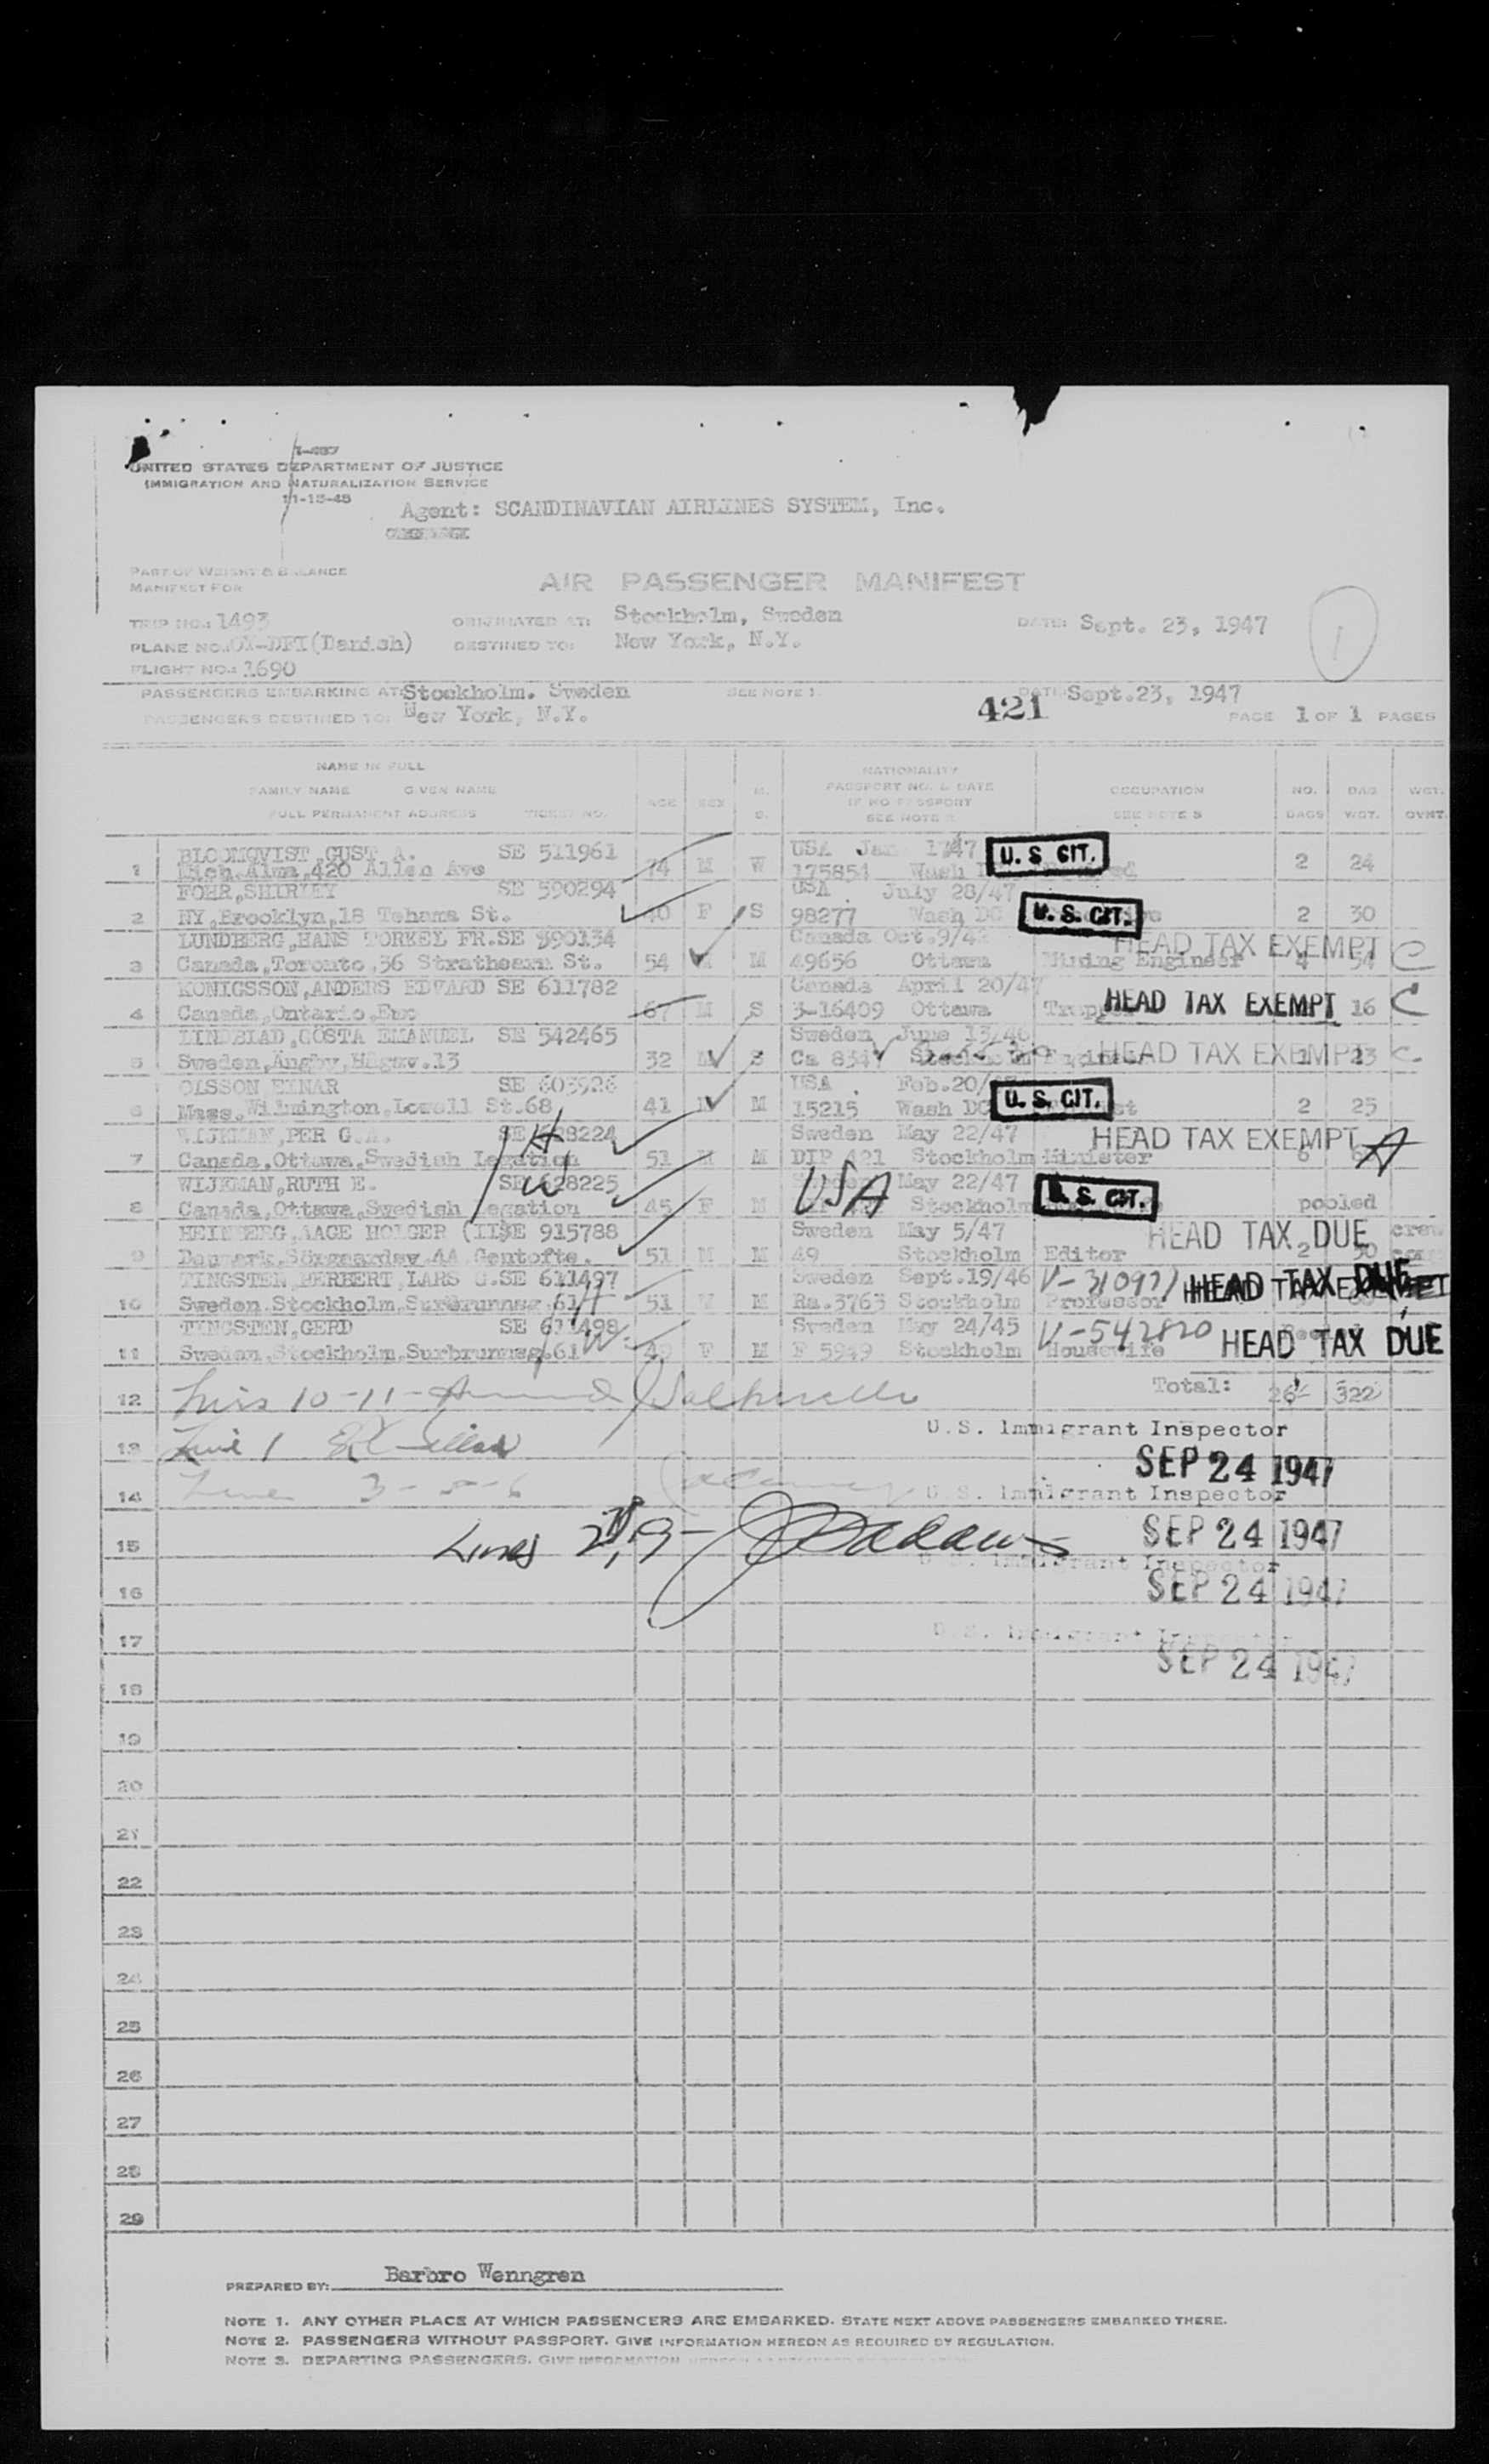 I-487
UNITED STATES DEPARTMENT OF JUSTICE
IMMIGRATION AND NATURALIZATION SERVICE
11-15-45
Agent: SCANDINAVIAN AIRLINES SYSTEM, Inc.
PART OF WEIGHT & BALANCE
MANIFEST FOR
AIR PASSENGER MANIFEST
TRIP NO.: 1493 ORIGINATED AT: Stockholm, Sweden DATE: Sept. 23, 1947 1
PLANE NO.: (Danish) DESTINED TO: New York, N.Y.
FLIGHT NO.: 1690
PASSENGERS EMBARKING AT: Stockholm. Sweden SEE NOTE 1. DATE: Sept.23, 1947
PASSENGERS DESTINED TO: New York, N.Y. 421 PAGE 1 OF 1 PAGES
NAME IN FULL NATIONALITY
FAMILY NAME GIVEN NAME AGE SEX M. PASSPORT NO. & DATE OCCUPATION NO. BAG WGT.
FULL PERMANENT ADDRESS TICKET NO. S. IF NO PASSPORT SEE NOTE BAGS WGT. OVNT.
BLOOMQVIST,GUST A. SE 511961 USA U. S. CIT.
1 Mich,Alma,420 Allen Ave 74 M W 175854 Wash 2 24
FOHR,SHIRLEY SE 590294 USA July 28/47 U. S. CIT.
2 NY,Brooklyn,18 Tehama St. 40 F S 98277 Wash DC 2 30
LUNDBERG,HANS TORKEL FR.SE 590134 Canada HEAD TAX EXEMPT C
3 Canada,Toronto,56 Strathearn St. 54 M 49656 Ottawa Mining Engineer 4 54
KONIGSSON,ANDERS EDVARD SE 611782 Canada April 20/47 HEAD TAX EXEMPT C
4 Canada,Ontario, 67 M S 3-16409 Ottawa 16
LINDBLAD,GÖSTA EMANUEL SE 542465 Sweden June 13/46 HEAD TAX EXEMPT C
5 Sweden,Ängby, 13 32 M S Ca 8347 Stockholm 23
OLSSON EINAR SE 603926 USA Feb.20/ U. S. CIT.
6 Mass.Wilmington,Lowell St.68 41 M M 15215 Wash DC 2 25
WIJKMAN,PER G.A. SE 628224 H Sweden May 22/47 HEAD TAX EXEMPT A
7 Canada,Ottawa,Swedish Legation 51 M M DIP 421 Stockholm Minister 6
WIJKMAN,RUTH E. SE 628225 W USA Sweden May 22/47 U. S. CIT.
8 Canada,Ottawa,Swedish Legation 45 F M Stockholm pooled
HEINBERG,AAGE HOLGER SE 915788 Sweden May 5/47 HEAD TAX DUE crew
9 Danmark, 44 Gentofte. 51 M M 49 Stockholm Editor 2 30
TINGSTEN,HERBERT LARS G.SE 611497 Sweden Sept.19/46 HEAD TAX DUE
10 Sweden.Stockholm,Surbrunnsg.61 H 51 M M Ra.3763 Stockholm Professor
TINGSTEN,GERD SE 611498 W Sweden May 24/45 V-542820 HEAD TAX DUE
11 Sweden,Stockholm,Surbrunnsg.61 F M F 5949 Stockholm Housewife
12 10-11- Total: 26 322
13 Line 1 U.S. Immigrant Inspector
SEP 24 1947
14 Line 3-5-6 U.S. Immigrant Inspector
15 Lines SEP 24 1947
U.S. Immigrant Inspector
16 SEP 24 1947
17 U.S. Immigrant Inspector
SEP 24 1947
18
19
20
21
22
23
24
25
26
27
28
29
PREPARED BY: Barbro Wenngren
NOTE 1. ANY OTHER PLACE AT WHICH PASSENGERS ARE EMBARKED. STATE NEXT ABOVE PASSENGERS EMBARKED THERE.
NOTE 2. PASSENGERS WITHOUT PASSPORT. GIVE INFORMATION HEREON AS REQUIRED BY REGULATION.
NOTE 3. DEPARTING PASSENGERS. GIVE INFORMATION